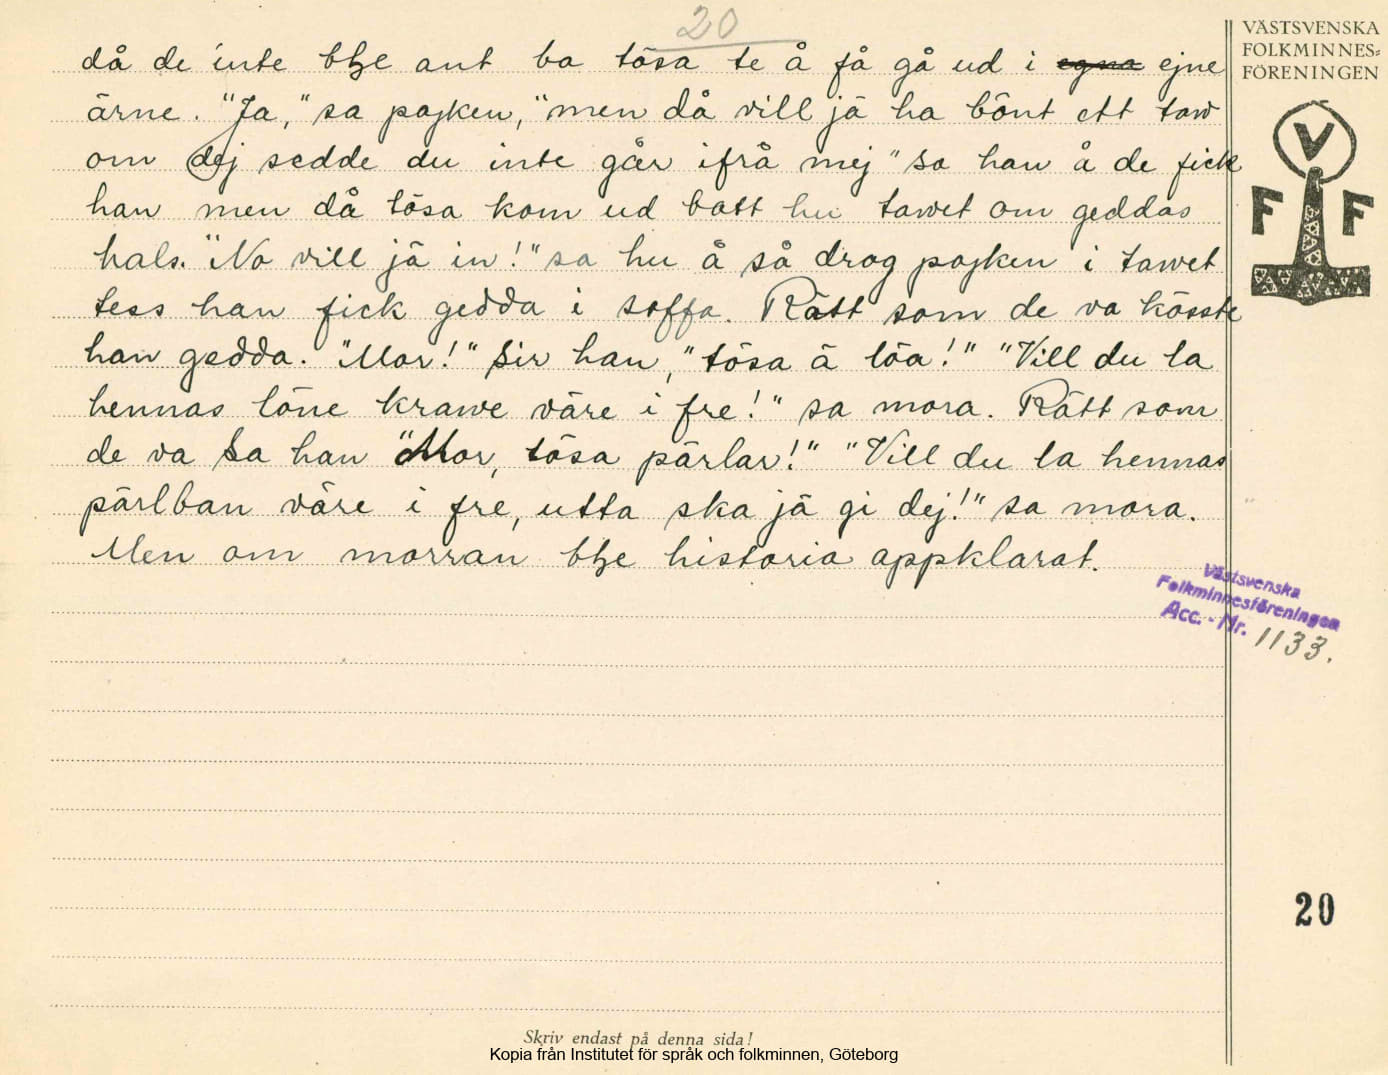 20
då de inte ble ant ba tösa te å få gå ud i egna ejne
ärne. "Ja," sa pojken, "men då vill jä ha bönt ett taw
om dej sedde du inte går ifrå mej" sa han å de fick
han men då tösa kom ud batt hu tawet om geddas
hals. "No vill jä in!" sa hu å så drog pojken i tawet
tess han fick gedda i soffa. Rätt som de va kösste
han gedda. "Mor!" sir han, "tösa ä löa!" "Vill du la
hennas löne krawe väre i fre!" sa mora. Rätt som
de va sa han "Mor, tösa pärlar!" "Vill du la hennas
pärlban väre i fre, utta ska jä gi dej!" sa mora.
Men om morran ble historia appklarat.
VÄSTSVENSKA
FOLKMINNES-
FÖRENINGEN
V
F F
Västsvenska
Folkminnesföreningen
Acc. - Nr. 1133.
20
Skriv endast på denna sida!
Kopia från Institutet för språk och folkminnen, Göteborg